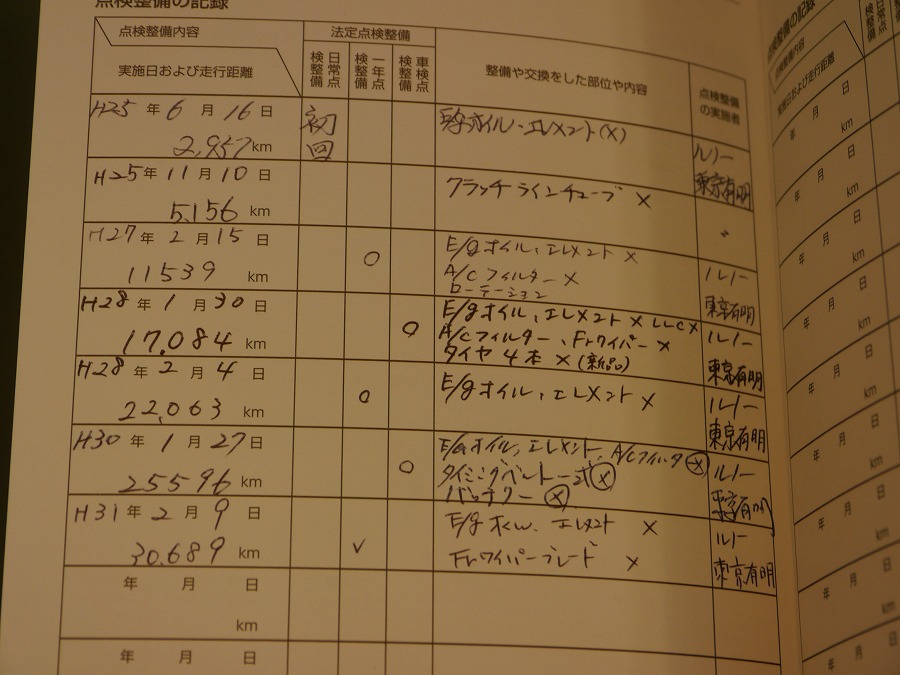 点検整備の記録
点検整備内容
実施日および走行距離
法定点検整備
日常点検整備
一年点検整備
車検点検整備
整備や交換をした部位や内容
点検整備の実施者
H25年6月16日
2,957km
初回
オイル・エレメント(×)
ルノー
東京有明
H25年11月10日
5,156km
クラッチラインチューブ ×
〃
H27年2月15日
11539km
○
E/gオイル、エレメント ×
A/Cフィルター ×
ローテーション
ルノー
東京有明
H28年1月30日
17,084km
○
E/gオイル、エレメント × LLC×
A/Cフィルター、Frワイパー ×
タイヤ4本 ×(新品)
ルノー
東京有明
H28年2月4日
22,063km
○
E/gオイル、エレメント ×
ルノー
東京有明
H30年1月27日
25596km
○
E/Gオイル、エレメント、A/Cフィルタ ⊗
タイミングベルト一式 ⊗
バッテリー ⊗
ルノー
東京有明
H31年2月9日
30,689km
✓
E/gオイル、エレメント ×
Frワイパーブレード ×
ルノー
東京有明
年 月 日
km
年 月 日
点検整備の記録
点検整備内容
実施日および走行距離
年 月 日
km
年 月 日
km
年 月 日
km
年 月 日
km
年 月 日
km
年 月 日
km
年 月 日
km
年 月 日
km
年 月 日